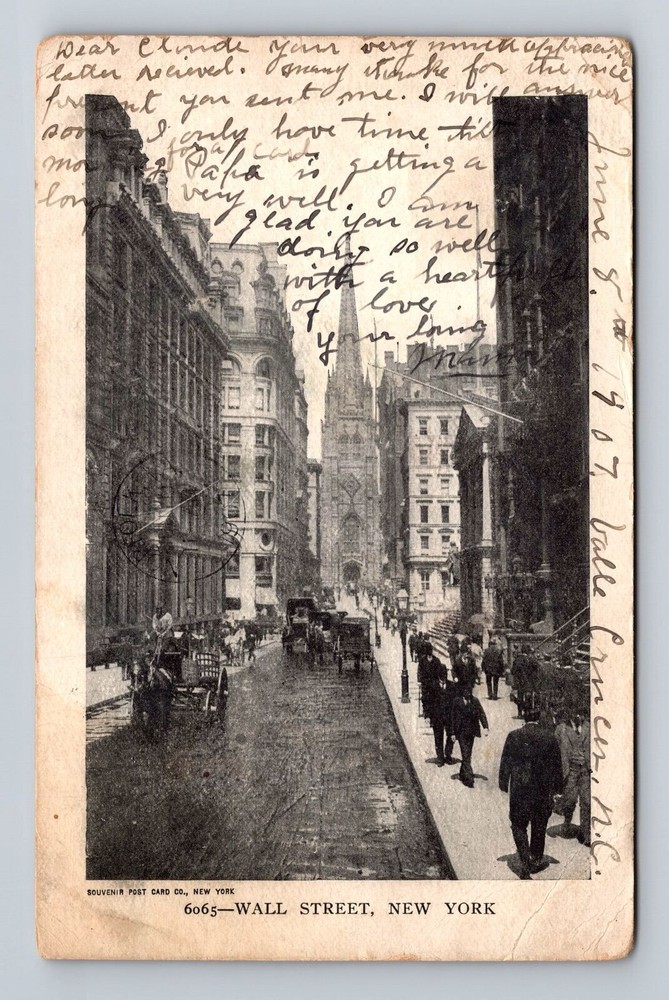 Dear Claude your very much appreciated
letter recieved. Many thanks for the nice
present you sent me. I will answer
soon I only have time till
for a card
Papa is getting a
long very well. I am
glad you are
doing so well
with a heart full
of love
your loving
Mama
June 8th 1907, Valle Crucis, N.C.
SOUVENIR POST CARD CO., NEW YORK
6065—WALL STREET, NEW YORK